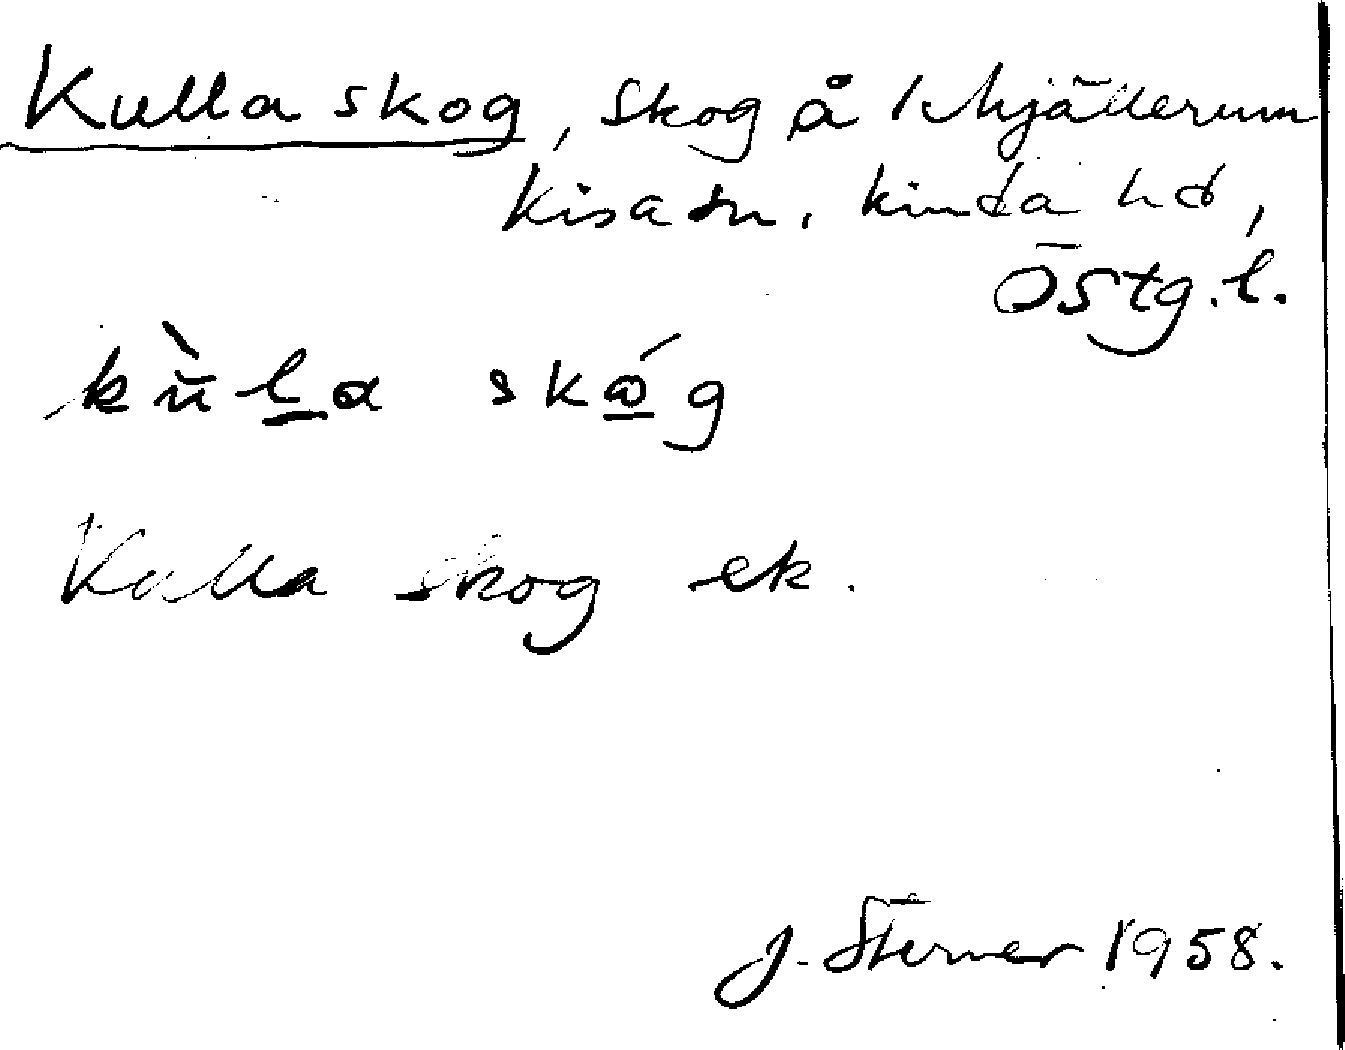 Kulla skog, Skog å Mjällerum
Kisa sn, Kinda hd,
Östg.l.
kùla skóg
Kulla skog ek.
J. Sterner 1958.